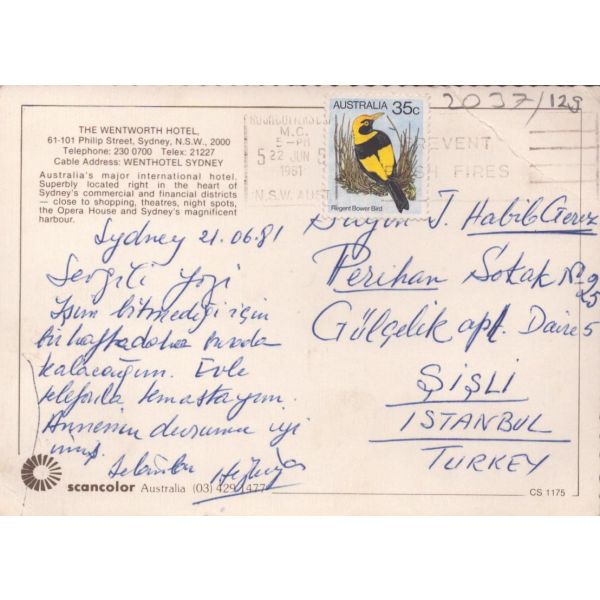 2037/125
THE WENTWORTH HOTEL,
61-101 Philip Street, Sydney, N.S.W., 2000
Telephone: 230 0700 Telex: 21227
Cable Address: WENTHOTEL SYDNEY
Australia's major international hotel.
Superbly located right in the heart of
Sydney's commercial and financial districts
— close to shopping, theatres, night spots,
the Opera House and Sydney's magnificent
harbour.
M.C.
5-PM
22 JUN
1981
N.S.W. AUST
AUSTRALIA 35c
Regent Bower Bird
FIRES
Sydney 21.06.81
Sevgili
İşim bitmediği için
bir hafta daha burada
kalacağım. Evle
telefonla temastayım.
Annenin durumu iyi
imiş.
Selamlar
Bayan J. Habib Gerez
Perihan Sokak No
Gülçelik apt. Daire 5
ŞİŞLİ
ISTANBUL
TURKEY
scancolor Australia (03) 429 1477
CS 1175